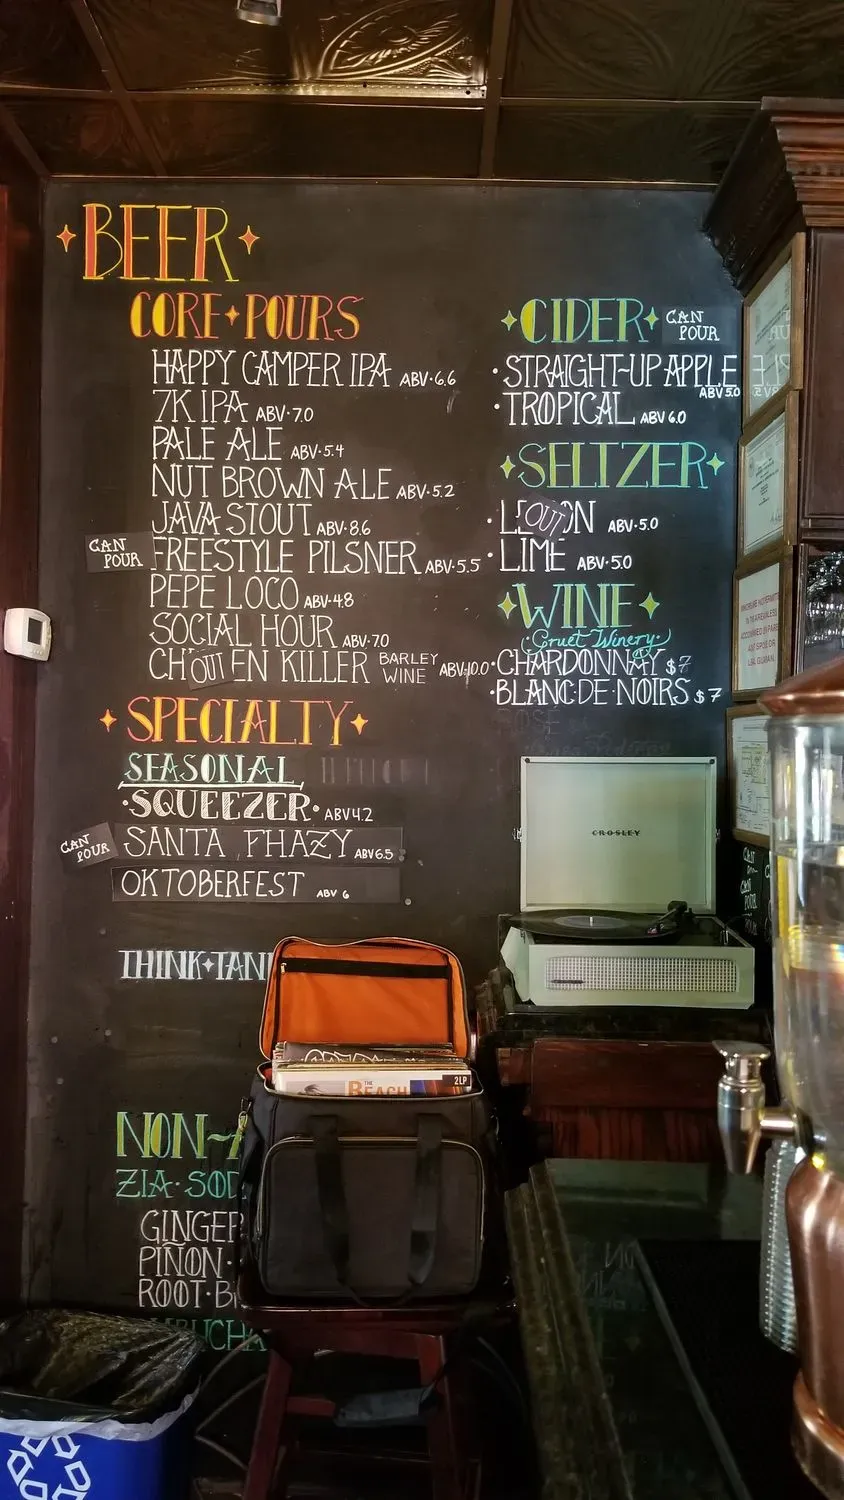 BEER
CORE POURS
HAPPY CAMPER IPA ABV·6.6
7K IPA ABV·7.0
PALE ALE ABV·5.4
NUT BROWN ALE ABV·5.2
JAVA STOUT ABV·8.6
CAN POUR FREESTYLE PILSNER ABV·5.5
PEPE LOCO ABV·4.8
SOCIAL HOUR ABV·7.0
CH OUT EN KILLER BARLEY WINE ABV·10.0
SPECIALTY
SEASONAL
·SQUEEZER· ABV 4.2
CAN POUR SANTA FHAZY ABV 6.5
OKTOBERFEST ABV 6
THINK TAN
NON-A
ZIA·SOD
GINGER
PIÑON·
ROOT·B
BUCHA
CIDER CAN POUR
·STRAIGHT-UP APPLE ABV 5.0
·TROPICAL ABV 6.0
SELTZER
·LE OUT ON ABV·5.0
·LIME ABV·5.0
WINE
Gruet Winery
·CHARDONNAY $7
·BLANC·DE·NOIRS $7
CROSLEY
THE BEACH
2LP